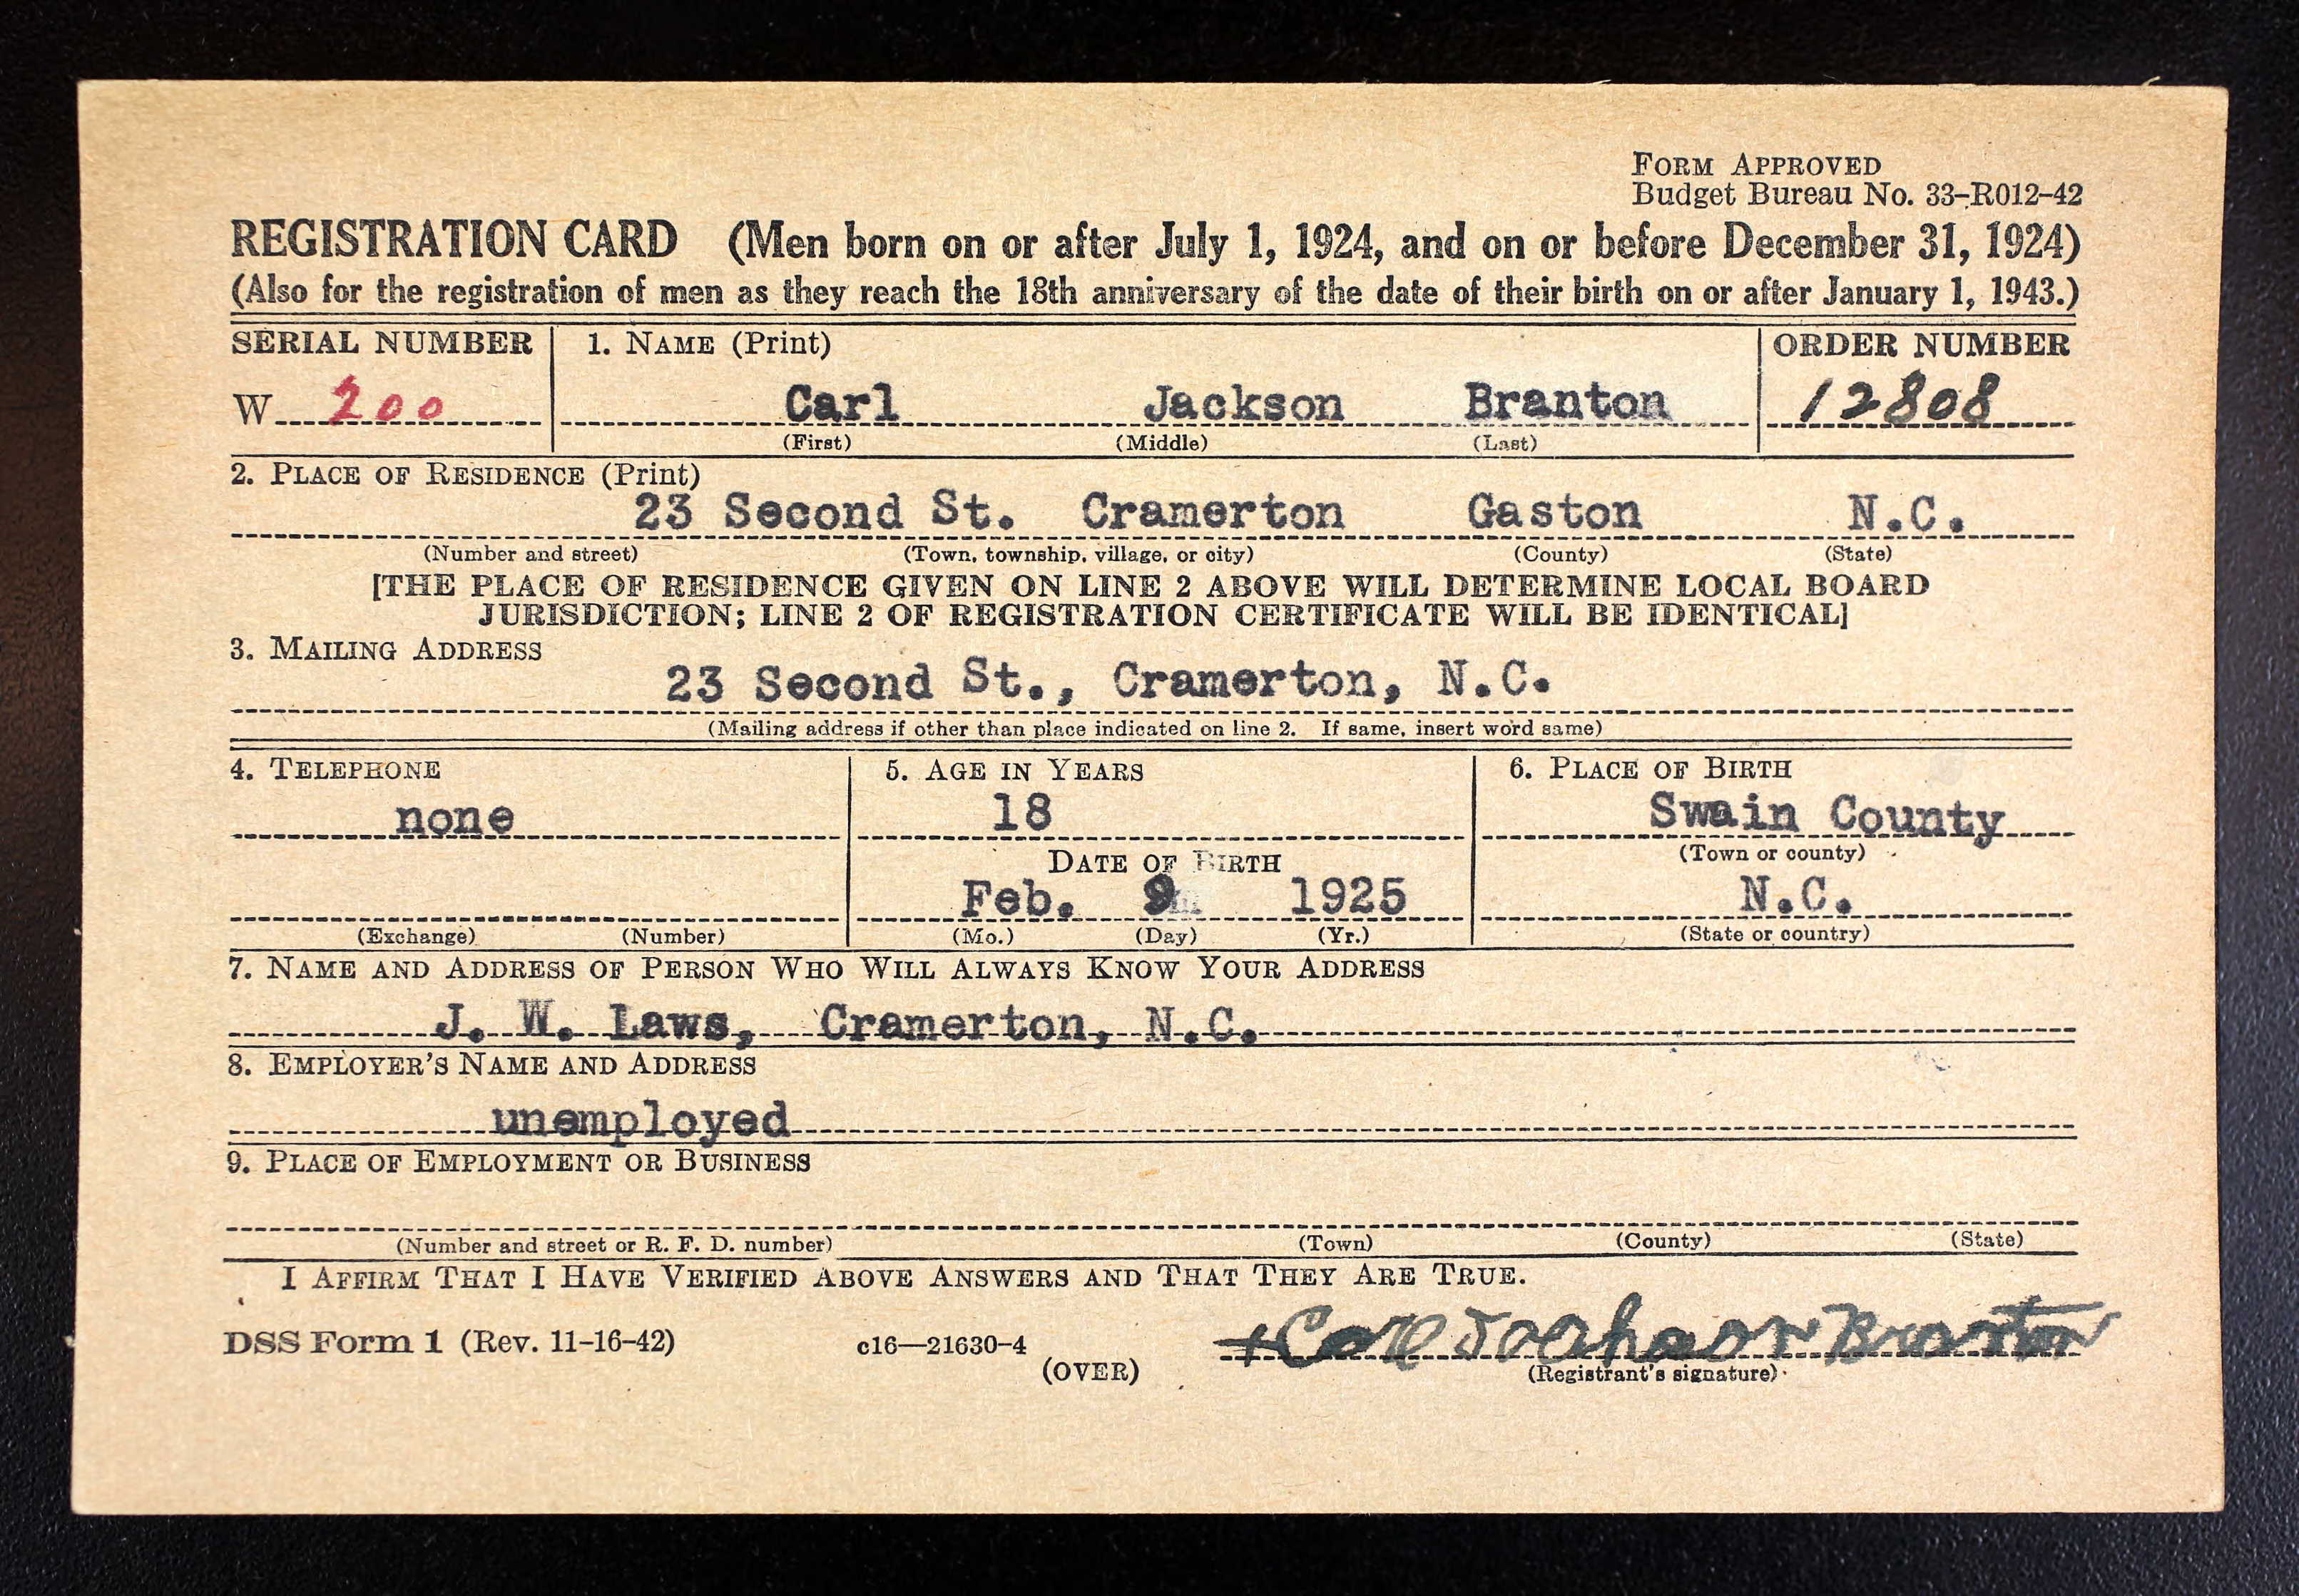 FORM APPROVED
Budget Bureau No. 33-R012-42
REGISTRATION CARD (Men born on or after July 1, 1924, and on or before December 31, 1924)
(Also for the registration of men as they reach the 18th anniversary of the date of their birth on or after January 1, 1943.)
SERIAL NUMBER 1. NAME (Print) ORDER NUMBER
W 200 Carl Jackson Branton 12808
(First) (Middle) (Last)
2. PLACE OF RESIDENCE (Print)
23 Second St. Cramerton Gaston N.C.
(Number and street) (Town, township, village, or city) (County) (State)
[THE PLACE OF RESIDENCE GIVEN ON LINE 2 ABOVE WILL DETERMINE LOCAL BOARD
JURISDICTION; LINE 2 OF REGISTRATION CERTIFICATE WILL BE IDENTICAL]
3. MAILING ADDRESS
23 Second St., Cramerton, N.C.
(Mailing address if other than place indicated on line 2. If same, insert word same)
4. TELEPHONE 5. AGE IN YEARS 6. PLACE OF BIRTH
none 18 Swain County
(Town or county)
DATE OF BIRTH
Feb. 9 1925 N.C.
(Exchange) (Number) (Mo.) (Day) (Yr.) (State or country)
7. NAME AND ADDRESS OF PERSON WHO WILL ALWAYS KNOW YOUR ADDRESS
J. W. Laws, Cramerton, N.C.
8. EMPLOYER'S NAME AND ADDRESS
unemployed
9. PLACE OF EMPLOYMENT OR BUSINESS
(Number and street or R. F. D. number) (Town) (County) (State)
I AFFIRM THAT I HAVE VERIFIED ABOVE ANSWERS AND THAT THEY ARE TRUE.
DSS Form 1 (Rev. 11-16-42) c16—21630-4 Carl Jackson Branton
(OVER) (Registrant's signature)